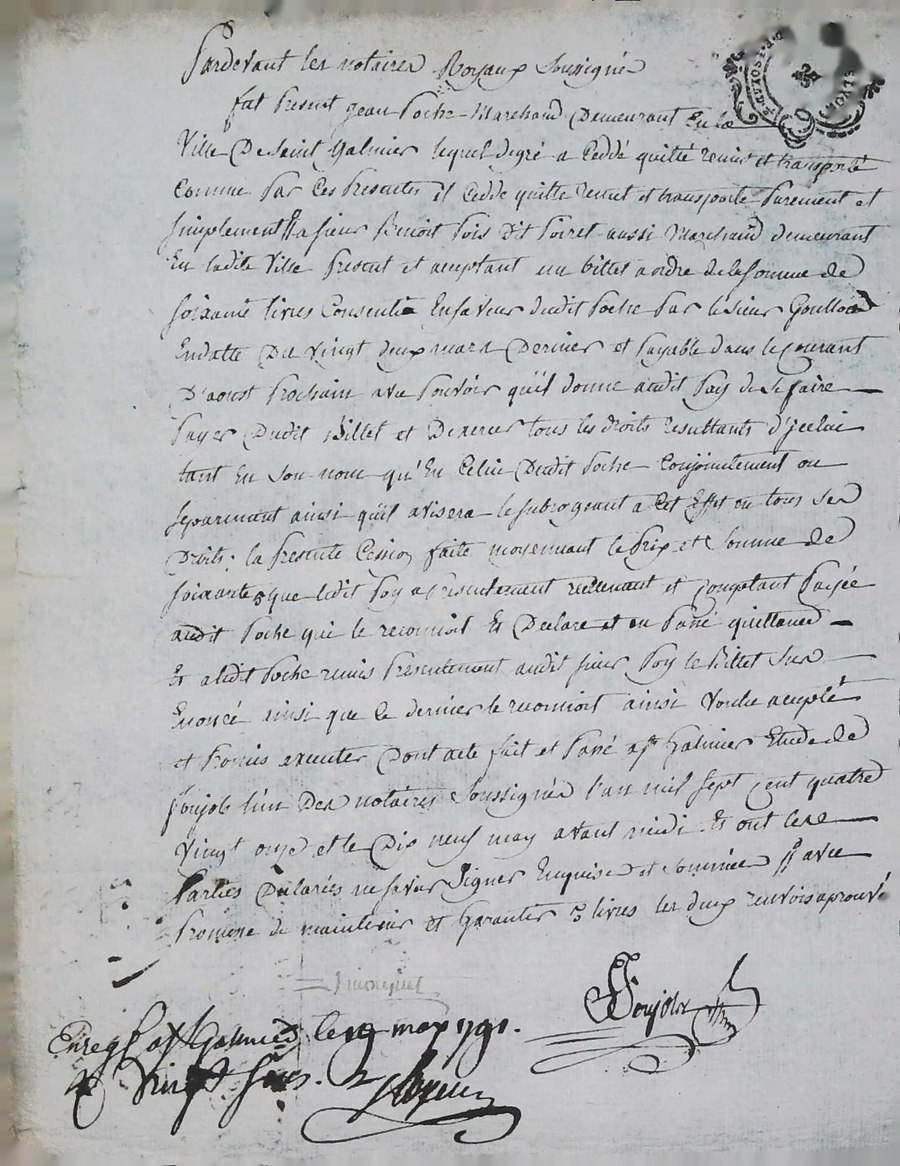 Pardevant les notaires Royaux Soussignés
fut Present jean Poche Marchand Demeurant En la
Ville De Saint Galmier lequel degré a Ceddé quitté remis et transporté
Comme Par Ces Presentes il Cedde quitte remet et transporte Purement et
simplement // a sieur Benoit Pois Dit Poiret aussi Marchand demeurant
En ladite Ville Present et acceptant un billet a ordre de la somme de
soixante livres Consentie En faveur dudit Poche Par le sieur
En datte Du Vingt deux mars Dernier et Payable dans le Courant
D'aoust Prochain avec Pouvoir qu'il donne audit Poy de se faire
Payer Dudit Billet et D'exercer tous les droits resultants d'jcelui
tant En son nom qu'En Celui Dudit Poche Conjointement ou
separement ainsi qu'il avisera le subrogeant a Cet Effet en tous ses
Droits; la Presente Cession faite moyennant le Prix et somme de
soixante que ledit Poy a Presentement reellement et Comptant Payée
audit Poche qui le reconnoit Et Declare et en Passe quittance
Et a ledit Poche remis Presentement audit sieur Poy le Billet sus
Enoncé ainsi que Ce dernier le reconnoit ainsi Voulu accepté
et Promis executer Dont acte fait et Passé a St Galmier Etude de
Ponjob l'un Des notaires Soussignés l'an mil sept Cent quatre
Vingt onze et le Dix neuf may avant midi Et ont lese
Parties Declarés ne savoir Signer Enquises et sommées // avec
Promesse de maintenir et Garantir livres les deux renvois aprouvé
Ponjob
Enreg a St Galmier le 19 may 1791.
R Vingt sous.